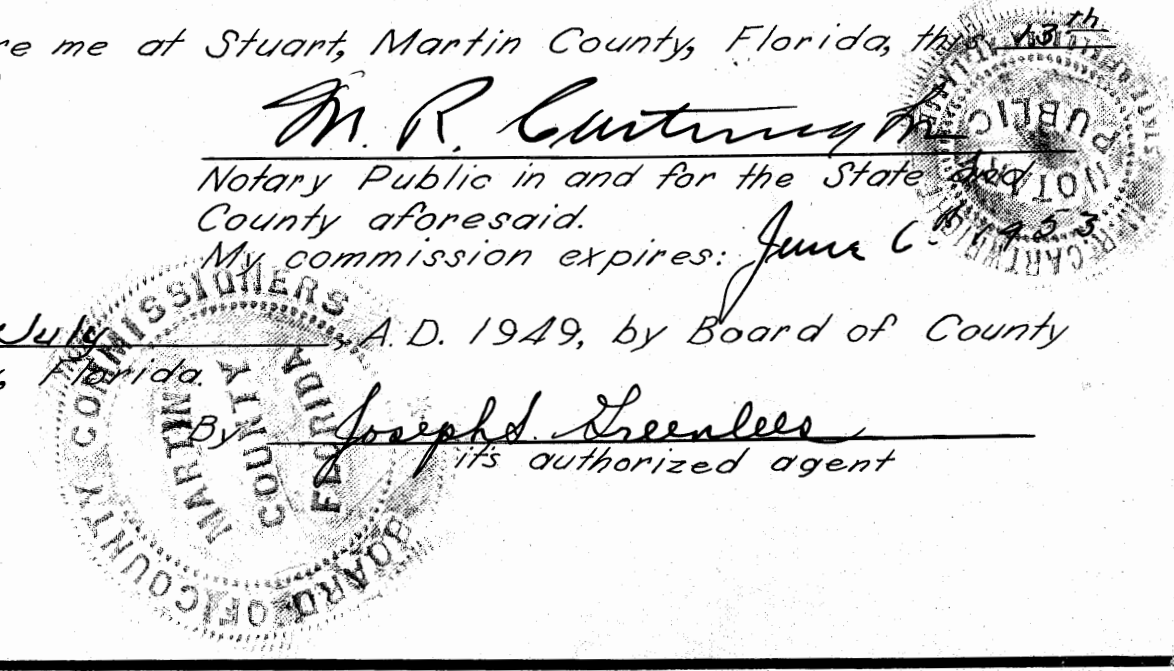 re me at Stuart, Martin County, Florida, this 13th
M. R. Cartwright
Notary Public in and for the State and
County aforesaid.
My commission expires: June 6, 1953
NOTARY PUBLIC
July, A.D. 1949, by Board of County
, Florida.
By Joseph S. Greenlees
its authorized agent
BOARD OF COUNTY COMMISSIONERS
MARTIN
COUNTY
FLORIDA